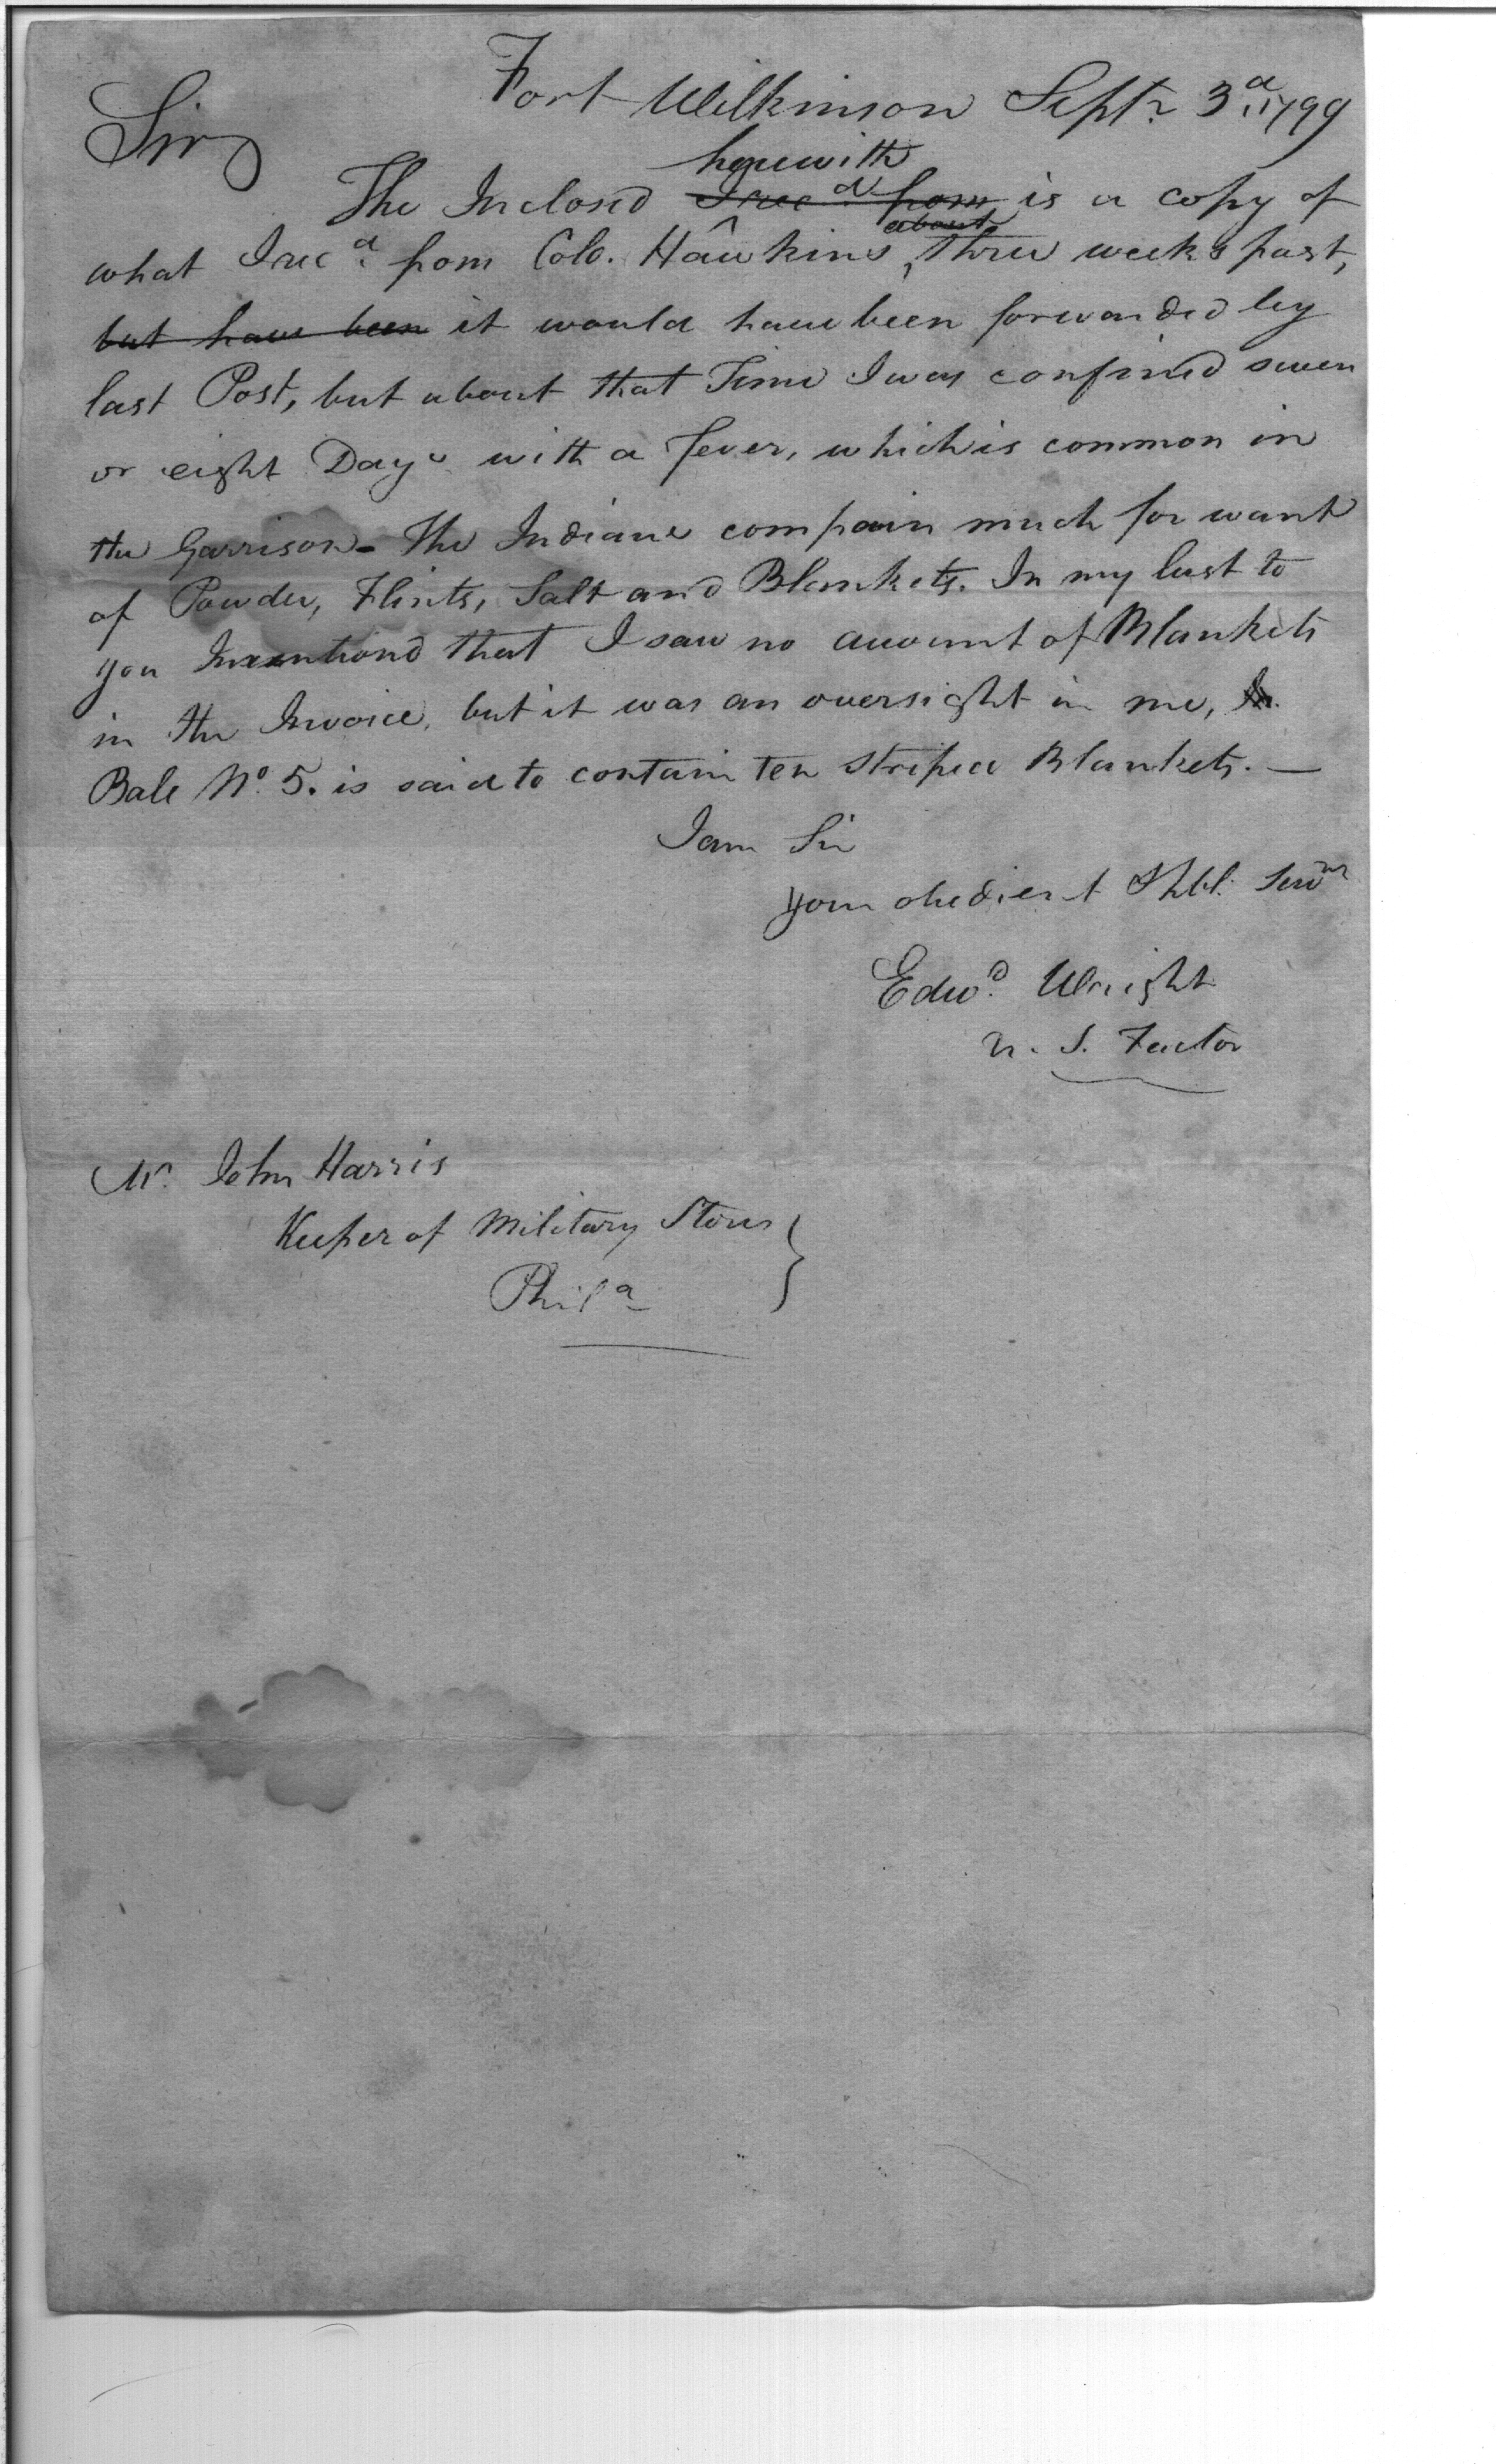 Fort Wilkinson Septr. 3d. 1799
Sir
herewith
The Inclosd I recd. from is a copy of
about
what I recd. from Colo. Hawkins, three weeks past,
but have been it would have been forwarded by
last Post, but about that Time I was confined seven
or eight Days with a fever, which is common in
the Garrison - The Indians compain much for want
of Powder, Flints, Salt and Blankets. In my last to
you I mentiond that I saw no account of Blankets
in the Invoice, but it was an oversight in me, In
Bale No. 5. is said to contain ten striped Blankets. —
I am Sir
your obedient Hbl. Servt
Edwd. Wright
U. S. Factor
Mr. John Harris
Keeper of Military Stores }
Phila